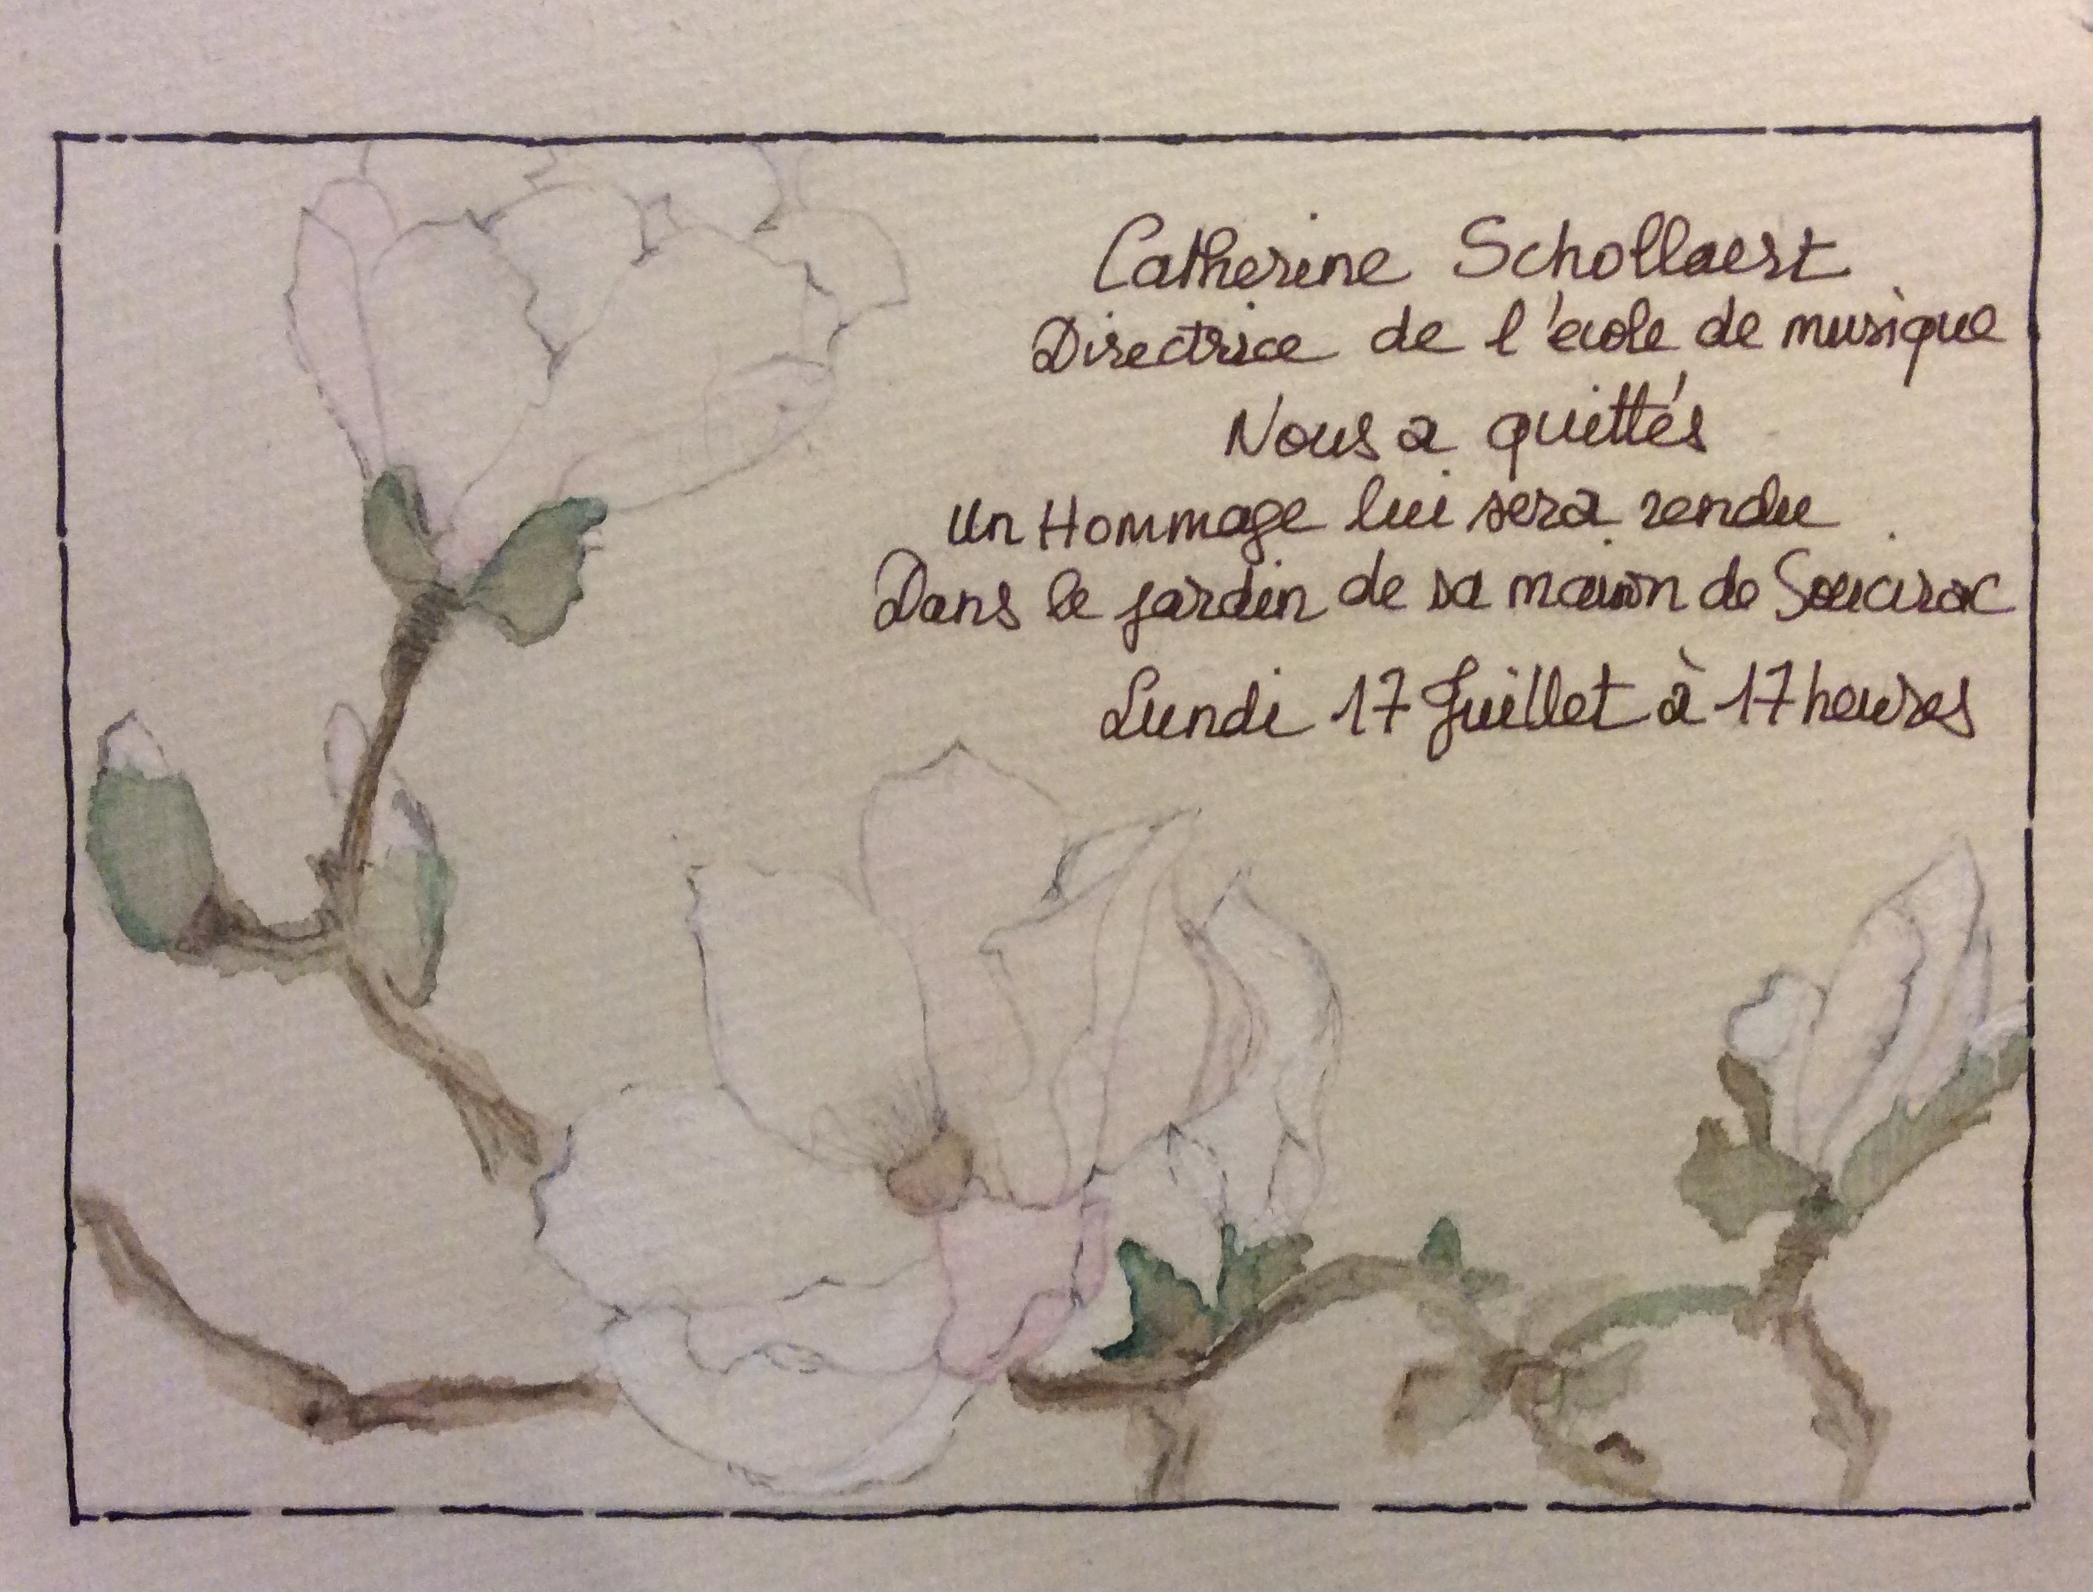 Catherine Schollaert
Directrice de l'école de musique
Nous a quittés
Un Hommage lui sera rendu
Dans le jardin de sa maison de Soucirac
Lundi 17 Juillet à 17 heures